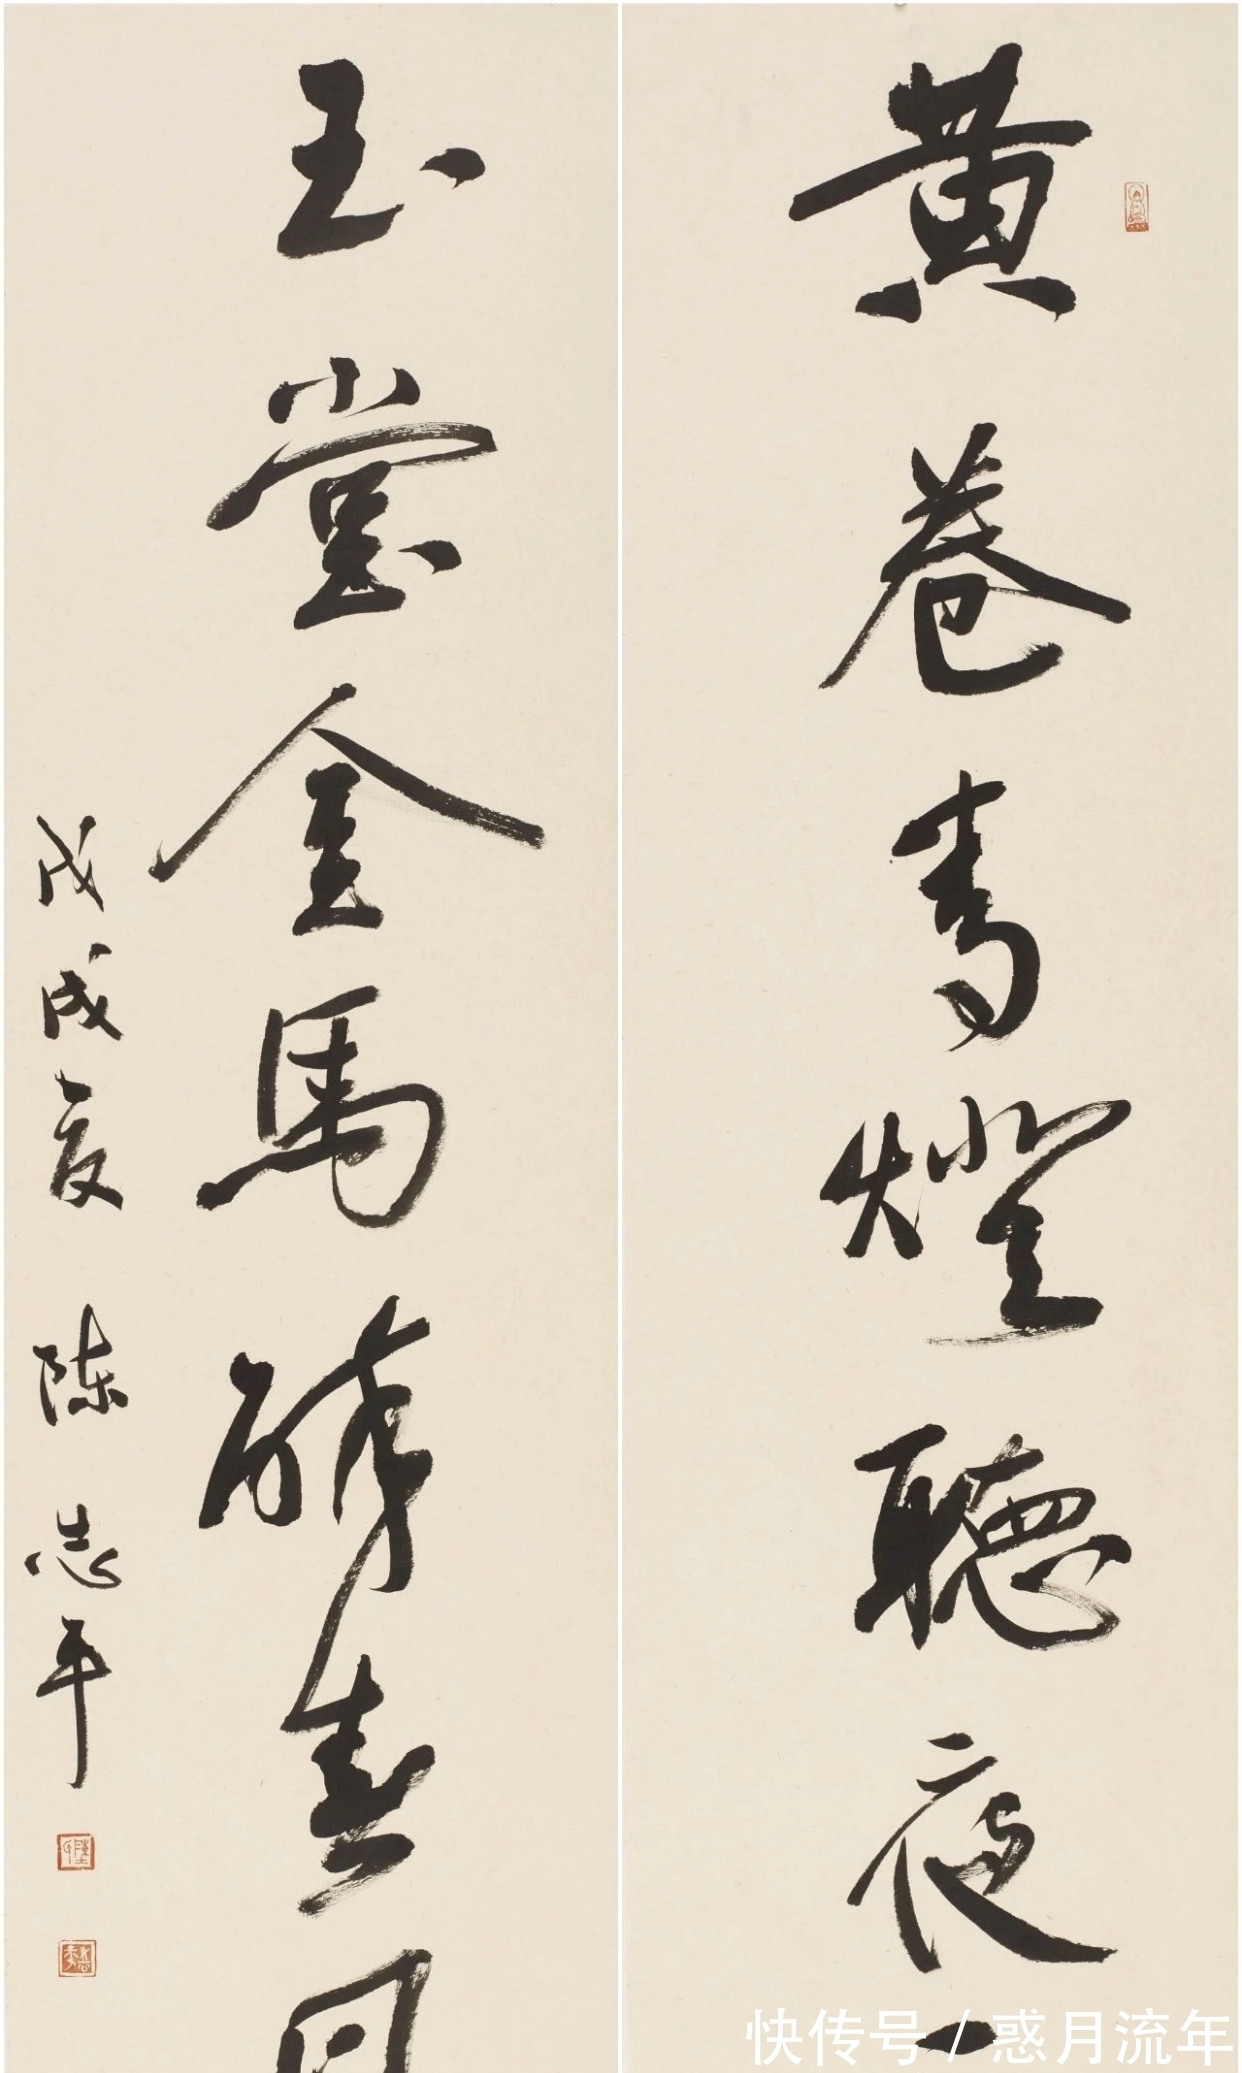 黄卷青燈聽夜
玉堂金馬醉春
戊戌夏 陈志平
快传号 / 惑月流年